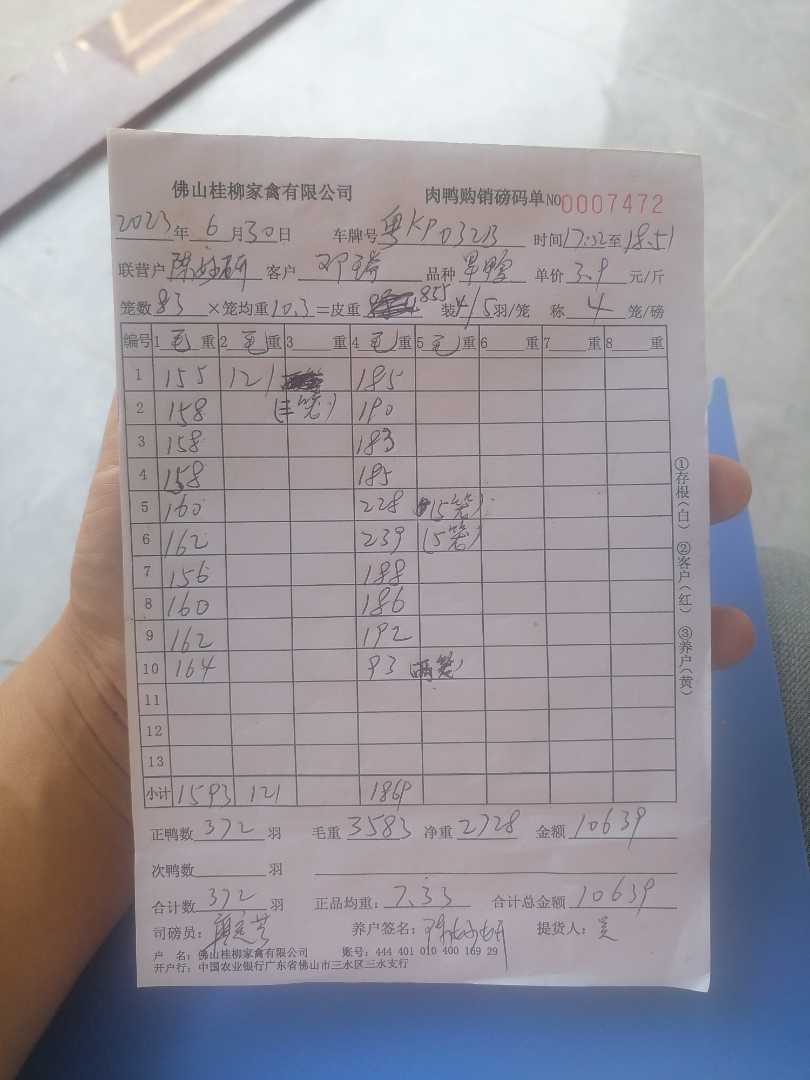 佛山桂柳家禽有限公司 肉鸭购销磅码单 NO 0007472
2023年6月30日 车牌号 粤KP032B 时间17:32至18:51
联营户 客户 邓 品种 单价 3.9 元/斤
笼数 83 ×笼均重 10.3 =皮重 855 装4/5羽/笼 称 4 笼/磅
编号 1 毛 重 2 毛 重 3 重 4 毛 重 5 毛 重 6 重 7 重 8 重
1 155 121 185
2 158 (三笼) 190
3 158 183
4 158 185
5 160 228 (5笼)
6 162 239 (5笼)
7 156 188
8 160 186
9 162 192
10 164 93 (两笼)
11
12
13
小计 1593 121 1869
正鸭数 372 羽 毛重 3583 净重 2728 金额 10639
次鸭数 羽
合计数 372 羽 正品均重: 7.33 合计总金额 10639
司磅员: 养户签名: 提货人: 吴
户 名: 佛山桂柳家禽有限公司 账号: 444 401 010 400 169 29
开户行: 中国农业银行广东省佛山市三水区三水支行
①存根(白) ②客户(红) ③养户(黄)